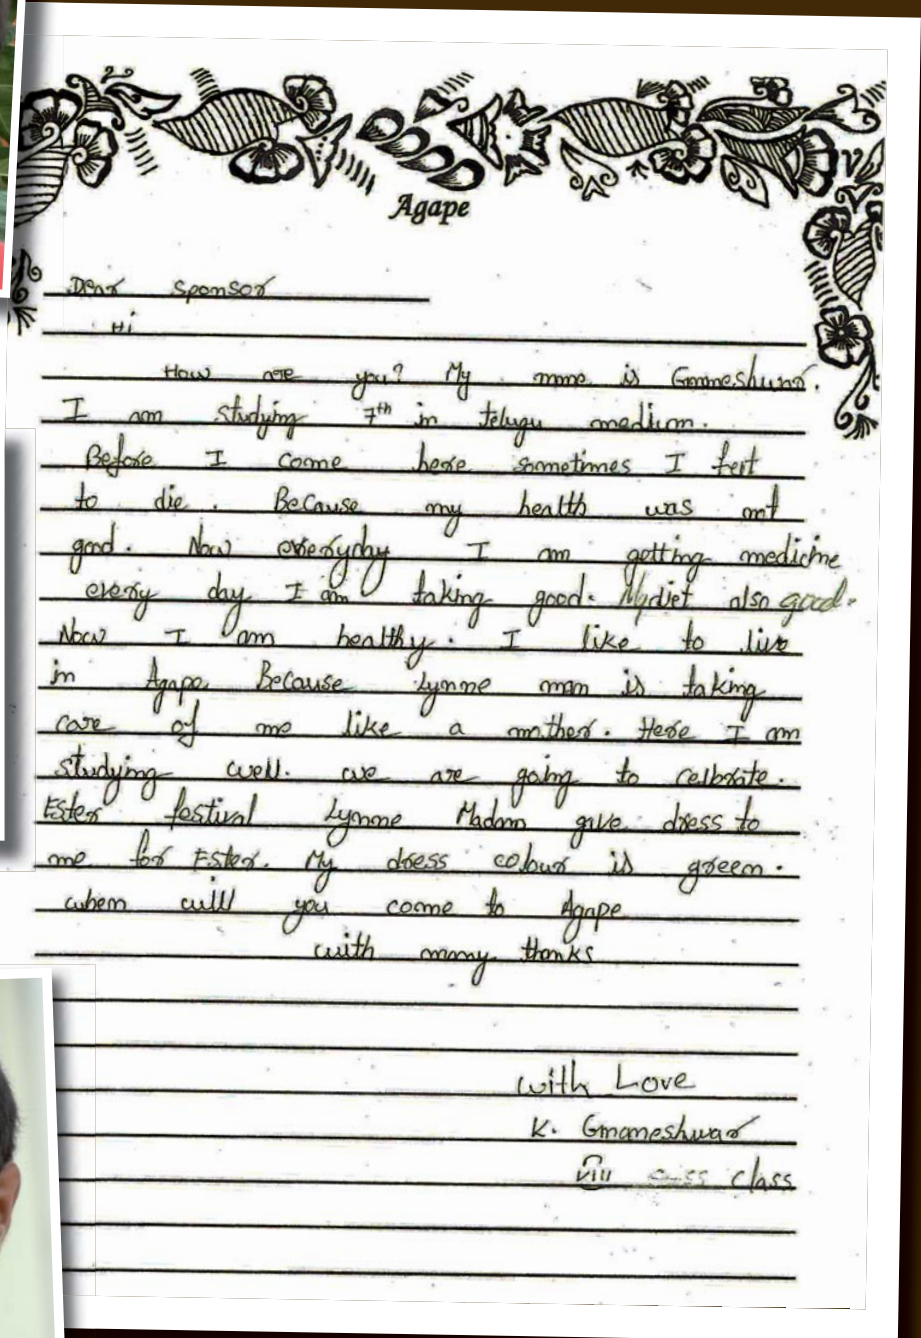 Agape
Dear sponsor
Hi
How are you? My name is Gnaneshwar.
I am studying 7th in telugu medium.
Before I come here sometimes I felt
to die. Because my health was not
good. Now everyday I am getting medicine
every day I am taking good. My diet also good.
Now I am healthy. I like to live
in Agape Because Lynne mam is taking
care of me like a mother. Here I am
studying well. we are going to celbrate.
Ester festival Lynne Madam give dress to
me for Ester. My dress colour is green.
when will you come to Agape
with many thanks
with Love
K. Gnaneshwar
VIII class